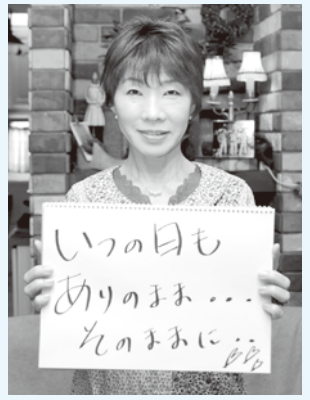 いつの日も
ありのまま...
そのままに..